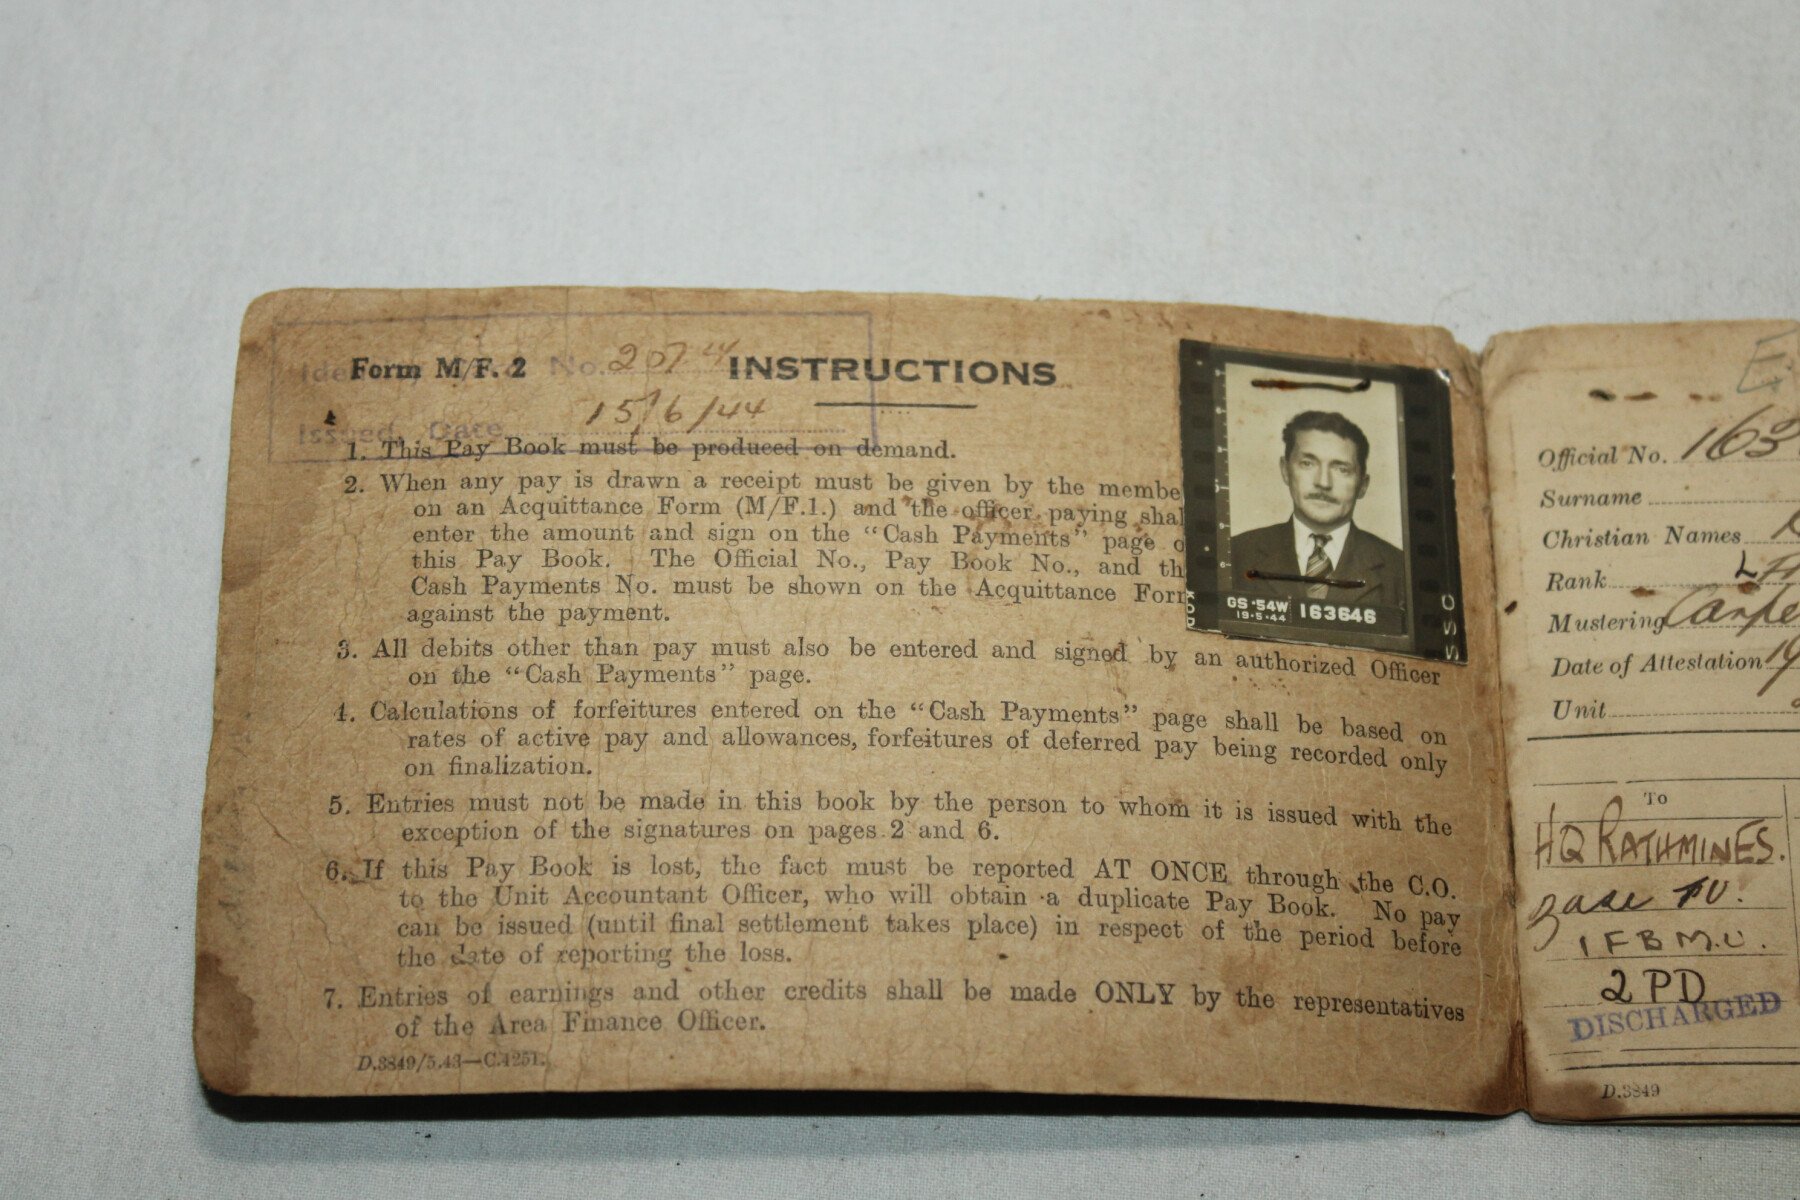 Form M/F. 2 No. 207 INSTRUCTIONS
Issued, Date 15/6/44
1. This Pay Book must be produced on demand.
2. When any pay is drawn a receipt must be given by the membe
on an Acquittance Form (M/F.1.) and the officer paying shal
enter the amount and sign on the "Cash Payments" page o
this Pay Book. The Official No., Pay Book No., and th
Cash Payments No. must be shown on the Acquittance Form
against the payment.
3. All debits other than pay must also be entered and signed by an authorized Officer
on the "Cash Payments" page.
4. Calculations of forfeitures entered on the "Cash Payments" page shall be based on
rates of active pay and allowances, forfeitures of deferred pay being recorded only
on finalization.
5. Entries must not be made in this book by the person to whom it is issued with the
exception of the signatures on pages 2 and 6.
6. If this Pay Book is lost, the fact must be reported AT ONCE through the C.O.
to the Unit Accountant Officer, who will obtain a duplicate Pay Book. No pay
can be issued (until final settlement takes place) in respect of the period before
the date of reporting the loss.
7. Entries of earnings and other credits shall be made ONLY by the representatives
of the Area Finance Officer.
D.3849/5.43—C.4251.
GS·54W 163646
19·5·44
KOD
SSC
Official No. 163
Surname
Christian Names
Rank
Mustering
Date of Attestation 19
Unit
To
HQ RATHMINES.
1 F B M.U.
2 PD
DISCHARGED
D.3849